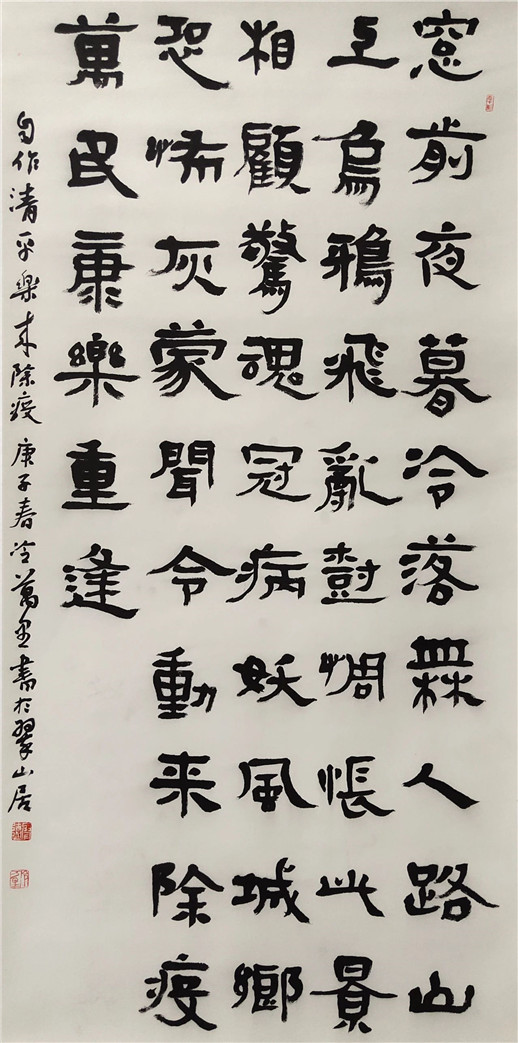 窓前夜暮冷落無人路山
上烏鴉飛亂樹惆悵此景
相顧驚魂冠病妖風城鄉
恐怖灰蒙聞令動来除疫
萬民康樂重逢
自作清平樂来除疫庚子春冷萬里書於翠山居